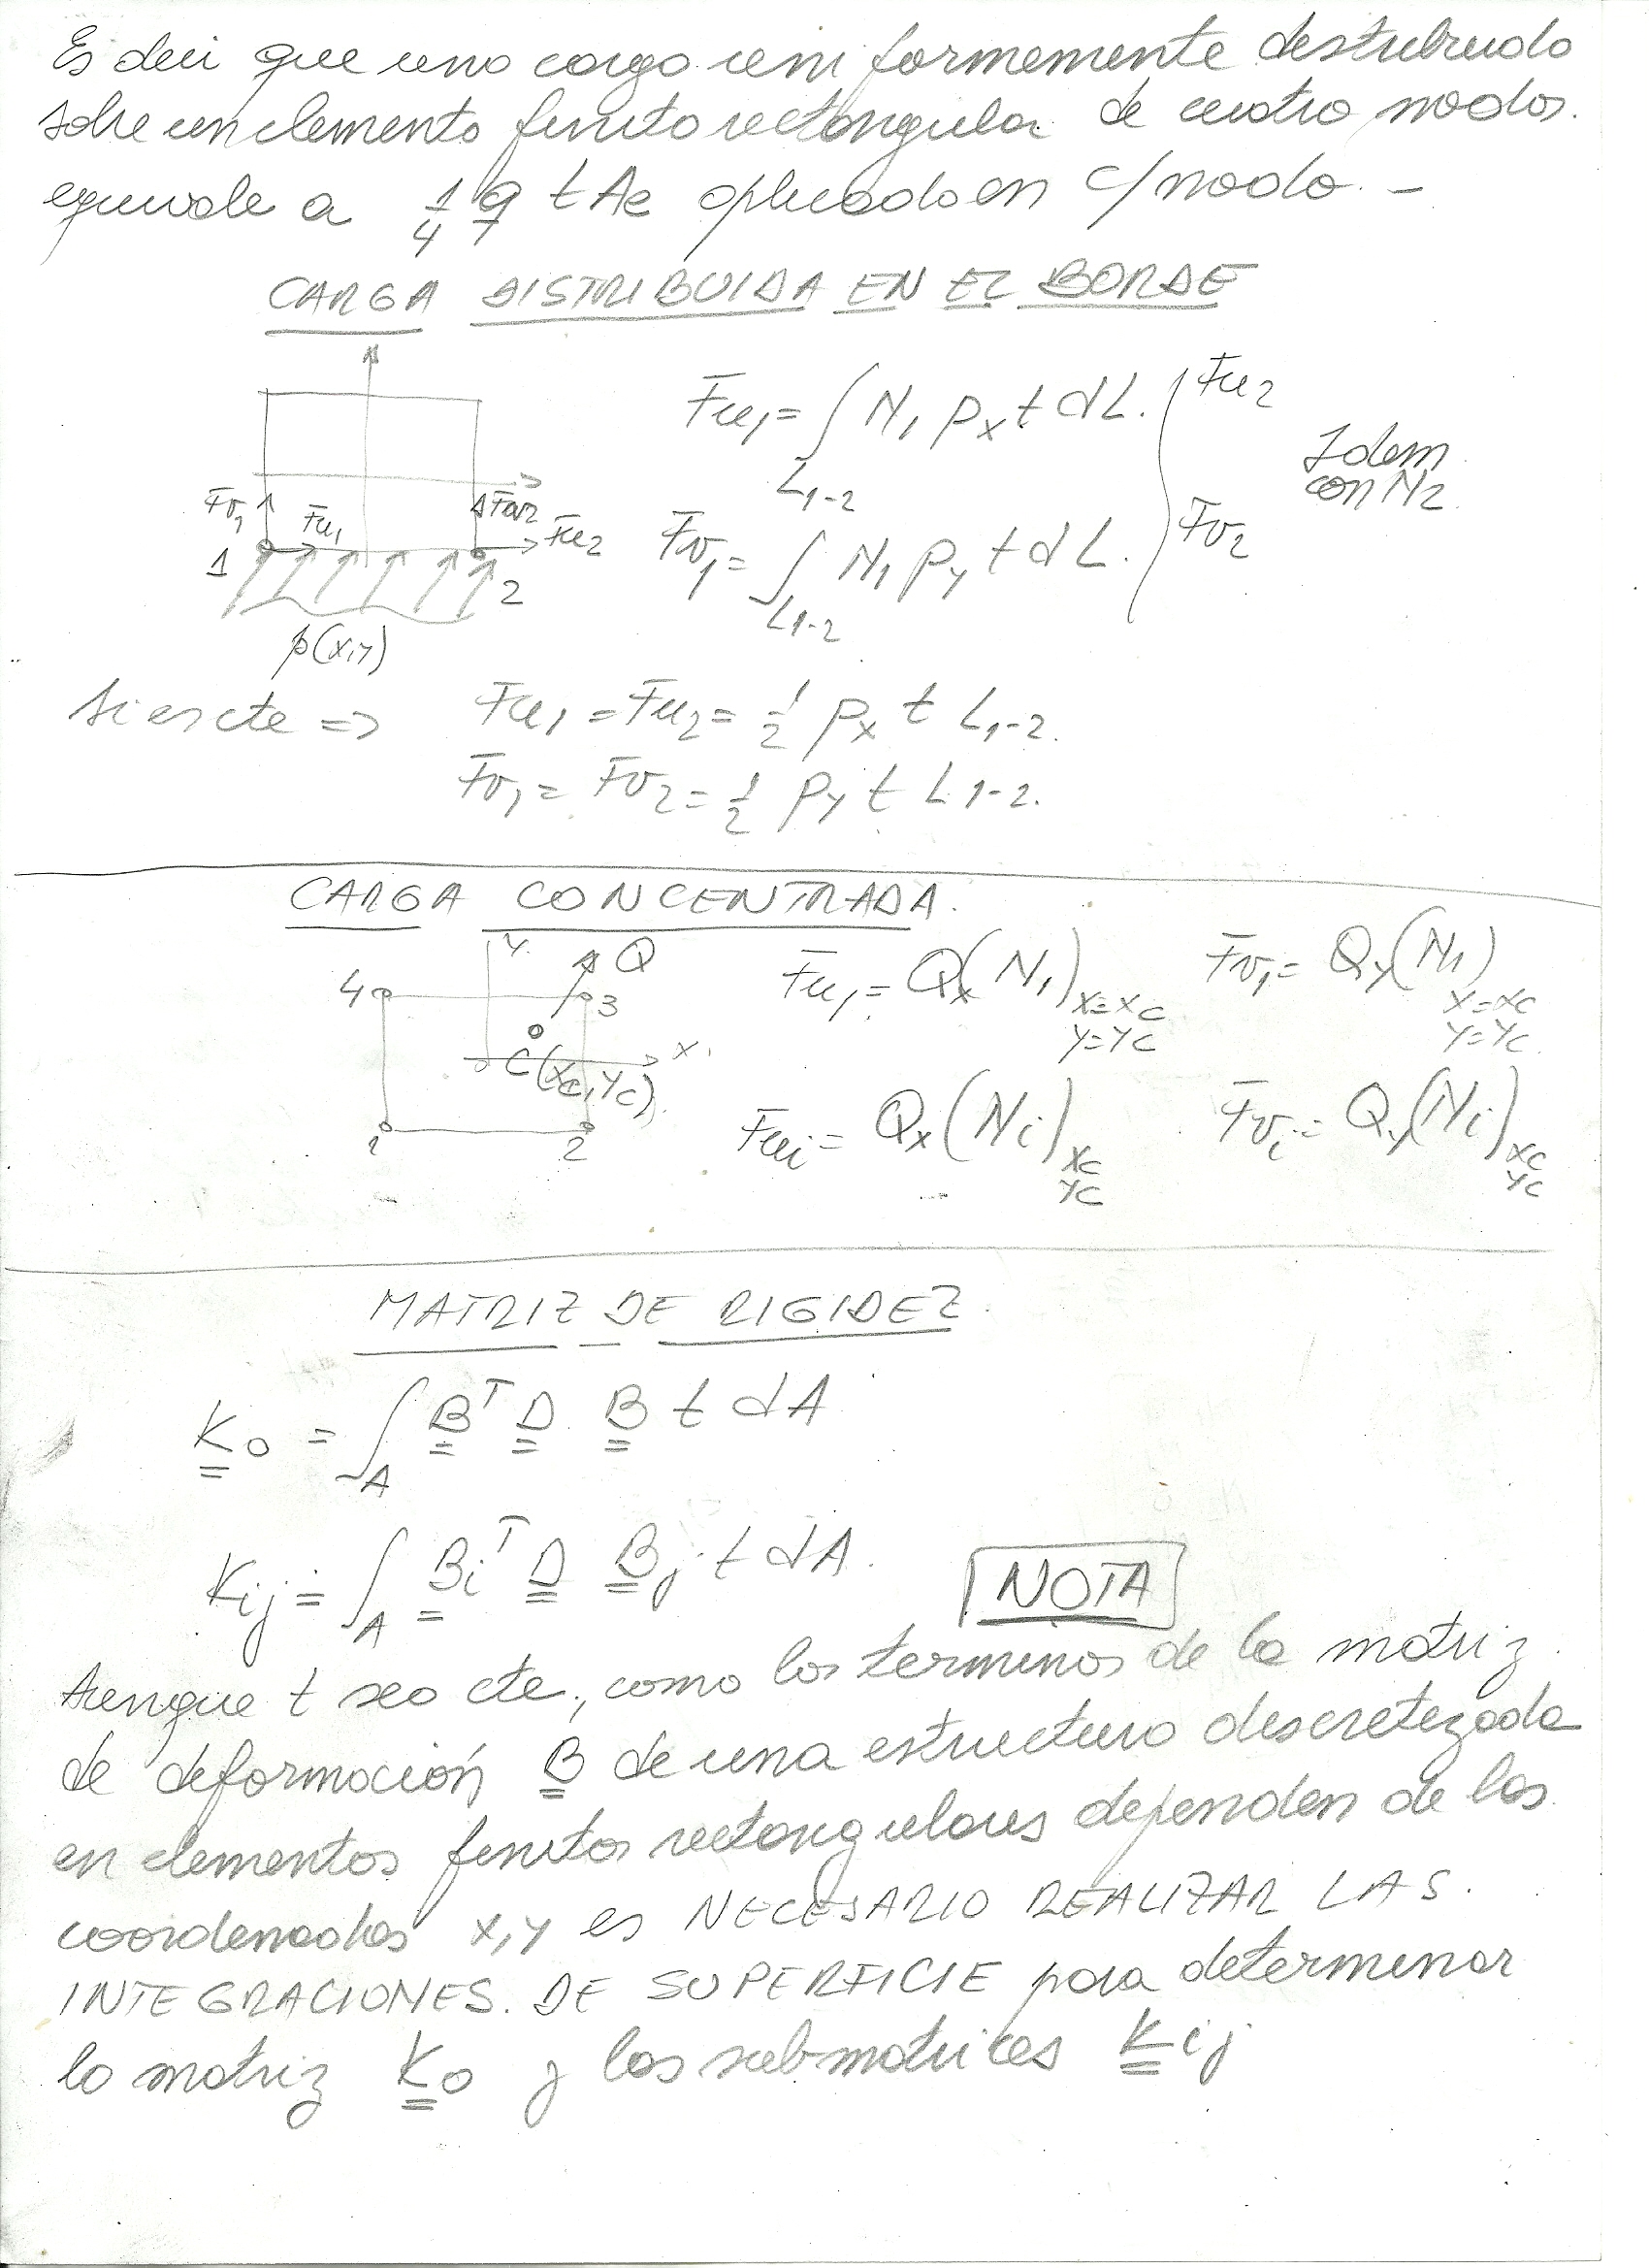 Es decir que una carga uniformemente distribuida
sobre un elemento finito rectangular de cuatro nodos.
equivale a 1/4 q t Ae aplicada en c/nodo. –
CARGA DISTRIBUIDA EN EL BORDE
Fu1 = ∫L1-2 N1 px t dL. Fu2
Idem
con N2.
Fv1 = ∫L1-2 N1 py t dL. Fv2
Fv1 Fu1 Fv2 Fu2
1 2
p(x,y)
si es cte => Fu1 = Fu2 = 1/2 px t L1-2.
Fv1 = Fv2 = 1/2 py t L1-2.
CARGA CONCENTRADA.
y Q
4 3
x
C(xc,yc)
1 2
Fu1 = Qx(N1) x=xc y=yc Fv1 = Qy(N1) x=xc y=yc
Fui = Qx(Ni) xc yc Fvi = Qy(Ni) xc yc
MATRIZ DE RIGIDEZ.
K0 = ∫A B^T D B t dA
Kij = ∫A Bi^T D Bj t dA.
NOTA
Aunque t sea cte., como los terminos de la matriz
de deformación B de una estructura discretizada
en elementos finitos rectangulares dependen de las
coordenadas x,y es NECESARIO REALIZAR LAS.
INTEGRACIONES. DE SUPERFICIE para determinar
la matriz K0 y las submatrices Kij